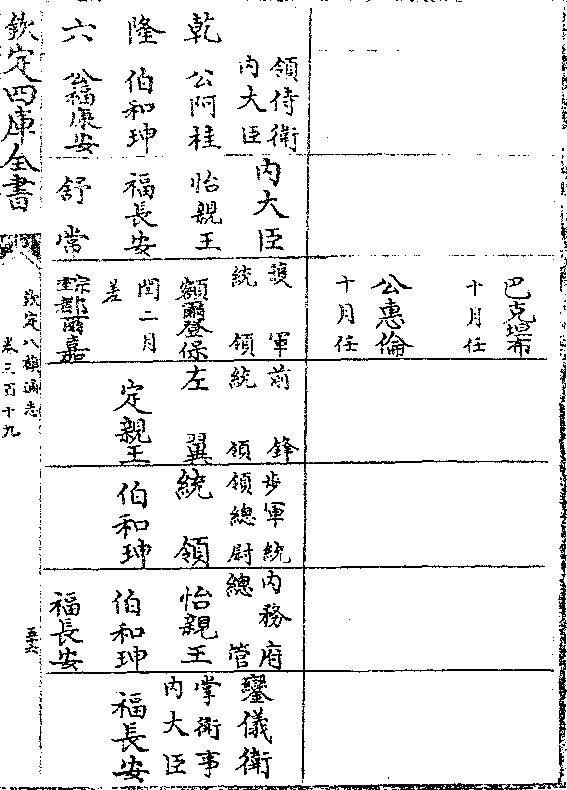 巴克坦布
十月任
公惠倫
十月任
領侍衛
內大臣
內大臣
護軍
統領
前鋒
統領
步軍統
領總尉
內務府
總管
鑾儀衛
乾
公阿桂
怡親王
額爾登保
左翼
統領
怡親王
掌衛事
內大臣
隆
伯和珅
福長安
閏二月
差
定親王
伯和珅
伯和珅
福長安
六
公福康安
舒常
都爾嘉
福長安
欽定四庫全書
欽定八旗通志
卷三百十九